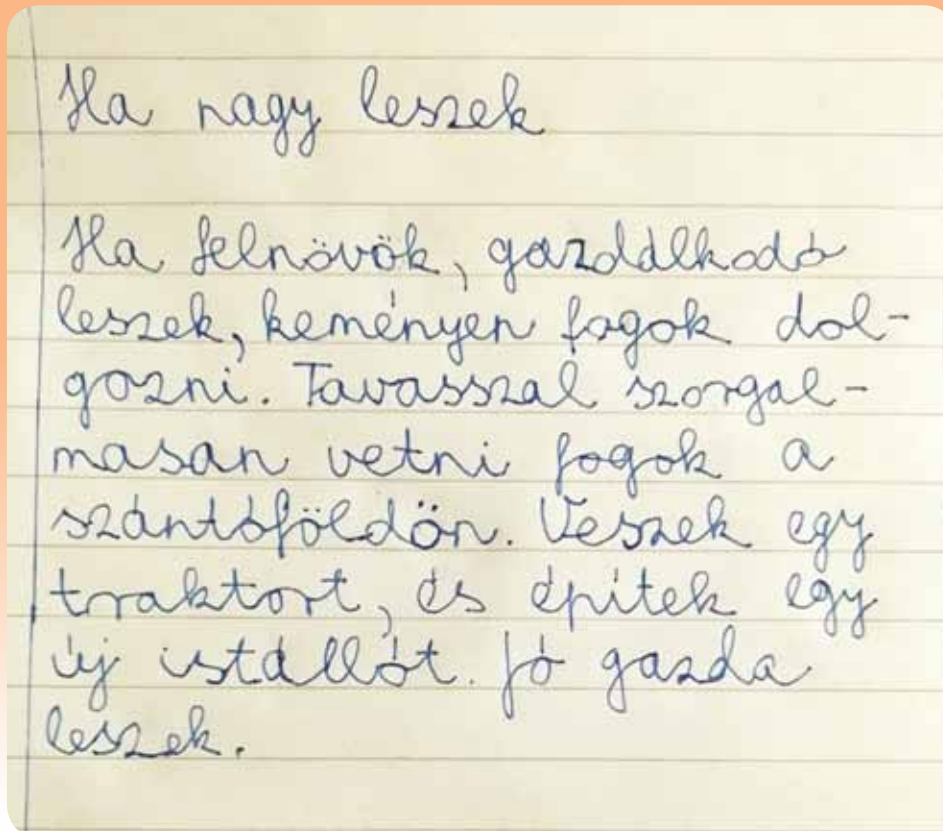 Ha nagy leszek
Ha felnövök, gazdálkodó
leszek, keményen fogok dol-
gozni. Tavasszal szorgal-
masan vetni fogok a
szántóföldön. Veszek egy
traktort, és építek egy
új istállót. Jó gazda
leszek.